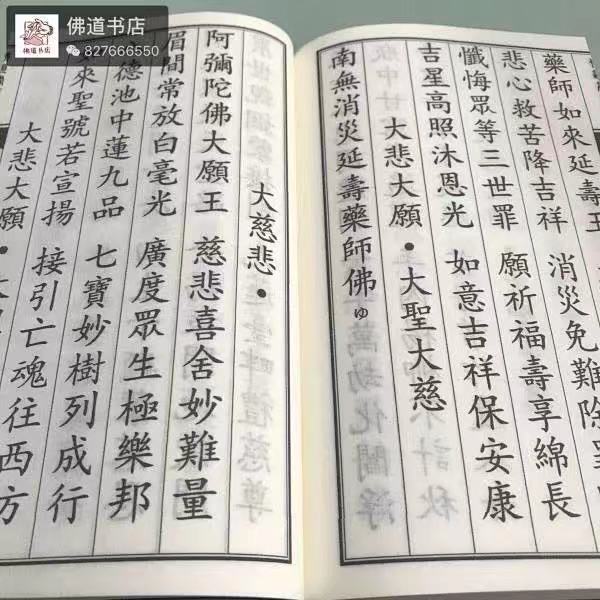 佛道书店
827666550
藥師如來延壽王
悲心救苦降吉祥 消災免難除罪
懺悔眾等三世罪 願祈福壽享綿長
吉星高照沐恩光 如意吉祥保安康
大悲大願・大聖大慈
南無消災延壽藥師佛ゅ
大慈悲・
阿彌陀佛大願王 慈悲喜舍妙難量
眉間常放白毫光 廣度眾生極樂邦
德池中蓮九品 七寶妙樹列成行
來聖號若宣揚 接引亡魂往西方
大悲大願・